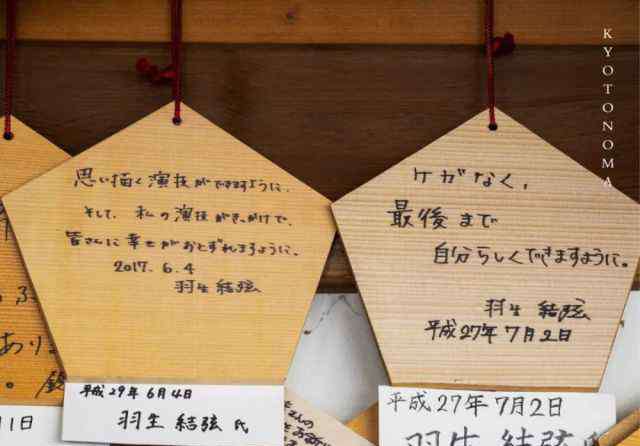 KYOTONOMA
思い描く演技ができますように、
そして、私の演技がきっかけで、
皆さんに幸せがおとずれますように。
2017.6.4
羽生結弦
平成29年6月4日
羽生 結弦 氏
ケガなく、
最後まで
自分らしくできますように。
羽生 結弦
平成27年7月2日
平成27年7月2日
羽生 結弦
あり
1日